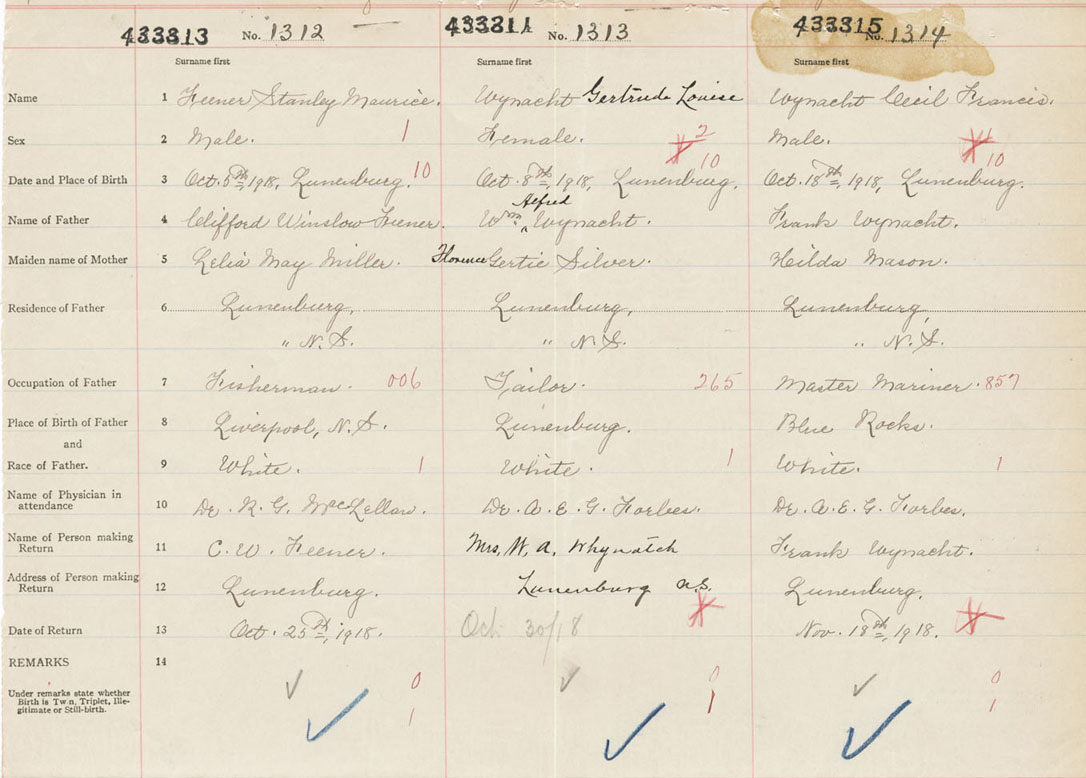 433813 No. 1312 433811 No. 1313 433315 No. 1314
Surname first Surname first Surname first
Name 1 Feener Stanley Maurice. Wynacht Gertrude Louise Wynacht Cecil Francis.
Sex 2 Male. 1 Female. 2 Male.
Date and Place of Birth 3 Oct. 5th, 1918, Lunenburg. 10 Oct. 8th, 1918, Lunenburg. 10 Oct. 18th, 1918, Lunenburg. 10
Alfred
Name of Father 4 Clifford Winslow Feener. Wm ^ Wynacht. Frank Wynacht.
Maiden name of Mother 5 Lelia May Miller. Florence Gertie Silver. Hilda Mason.
Residence of Father 6 Lunenburg, Lunenburg, Lunenburg,
" N.S. " N.S. " N.S.
Occupation of Father 7 Fisherman. 006 Tailor. 265 Master Mariner. 857
Place of Birth of Father 8 Liverpool, N.S. Lunenburg. Blue Rocks.
and
Race of Father. 9 White. 1 White. 1 White. 1
Name of Physician in
attendance 10 Dr. R. G. MacLellan. Dr. A. E. G. Forbes. Dr. A. E. G. Forbes.
Name of Person making
Return 11 C. W. Feener. Mrs, W. A. Whynatch Frank Wynacht.
Address of Person making
Return 12 Lunenburg. Lunenburg N.S. Lunenburg.
Date of Return 13 Oct. 25th, 1918. Oct 30/18 Nov. 18th, 1918.
REMARKS 14
0 0 0
Under remarks state whether
Birth is Twin, Triplet, Ille-
gitimate or Still-birth.
1 1 1